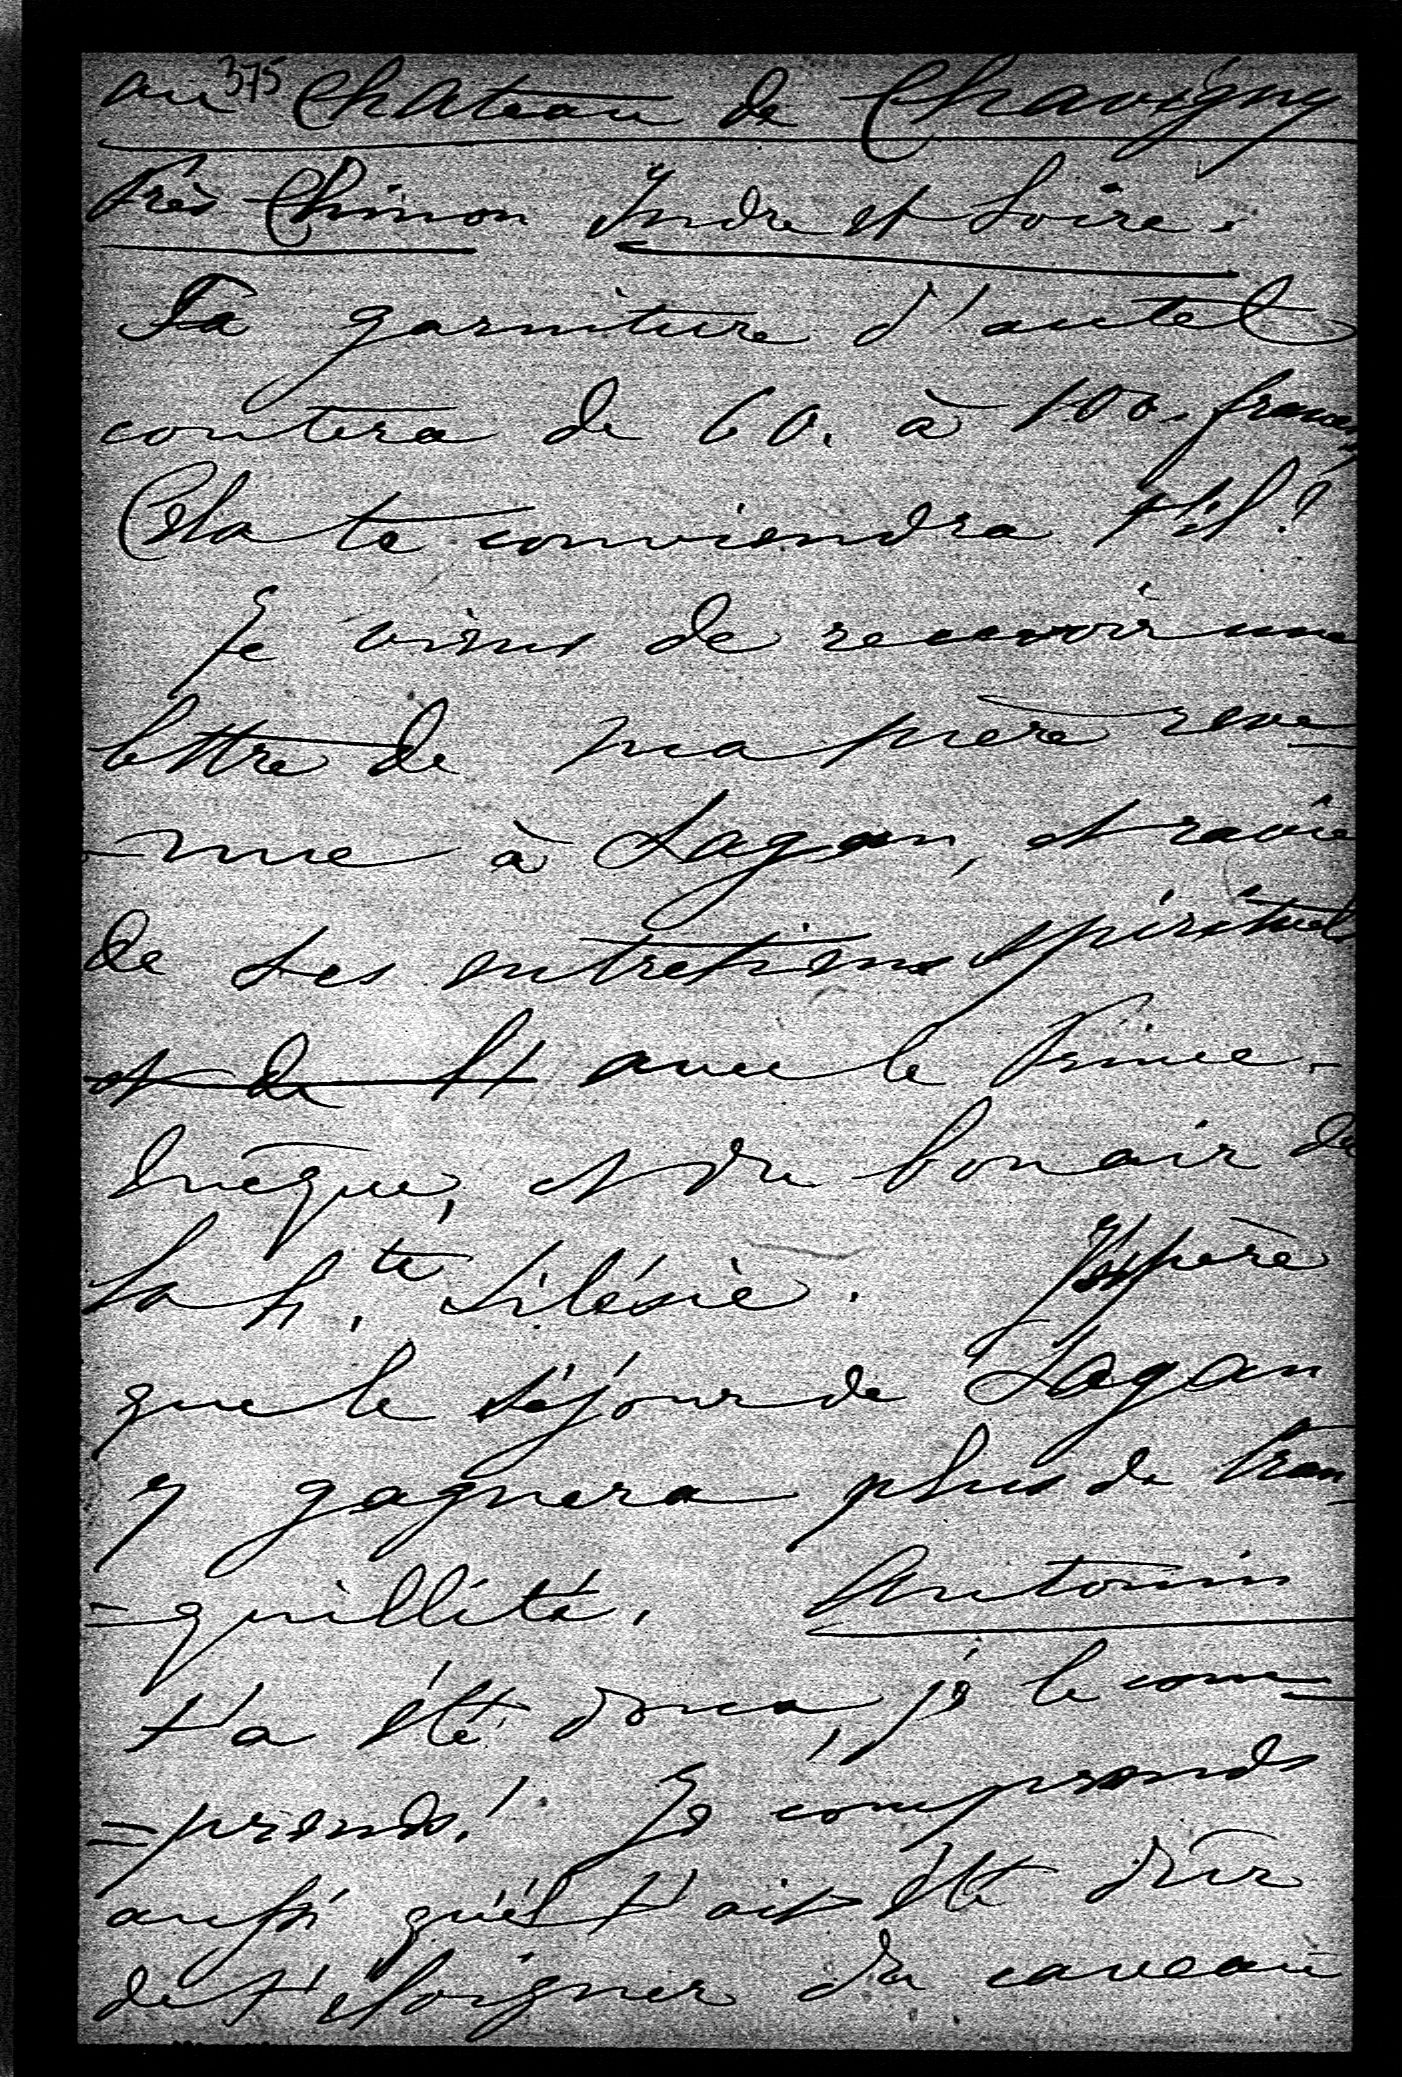 375
au Chateau de Chavigny
Près Chinon Indre et Loire.
Ta garniture d'autel
coutera de 60. à 100. francs
Cela te conviendra t'il?
Je viens de recevoir une
lettre de ma mère reve
-nue à Sagan, et ravie
de ses entretiens spirituels
et de St avec le Prince-
Evêque, et du bon air de
la hte Silésie. J'espère
que le séjour de Sagan
y gagnera plus de tran
=quillité. Antonin
t'a été doux, je le com=
=prends! Je comprends
aussi qu'il t'ait été dur
de t'éloigner du caveau